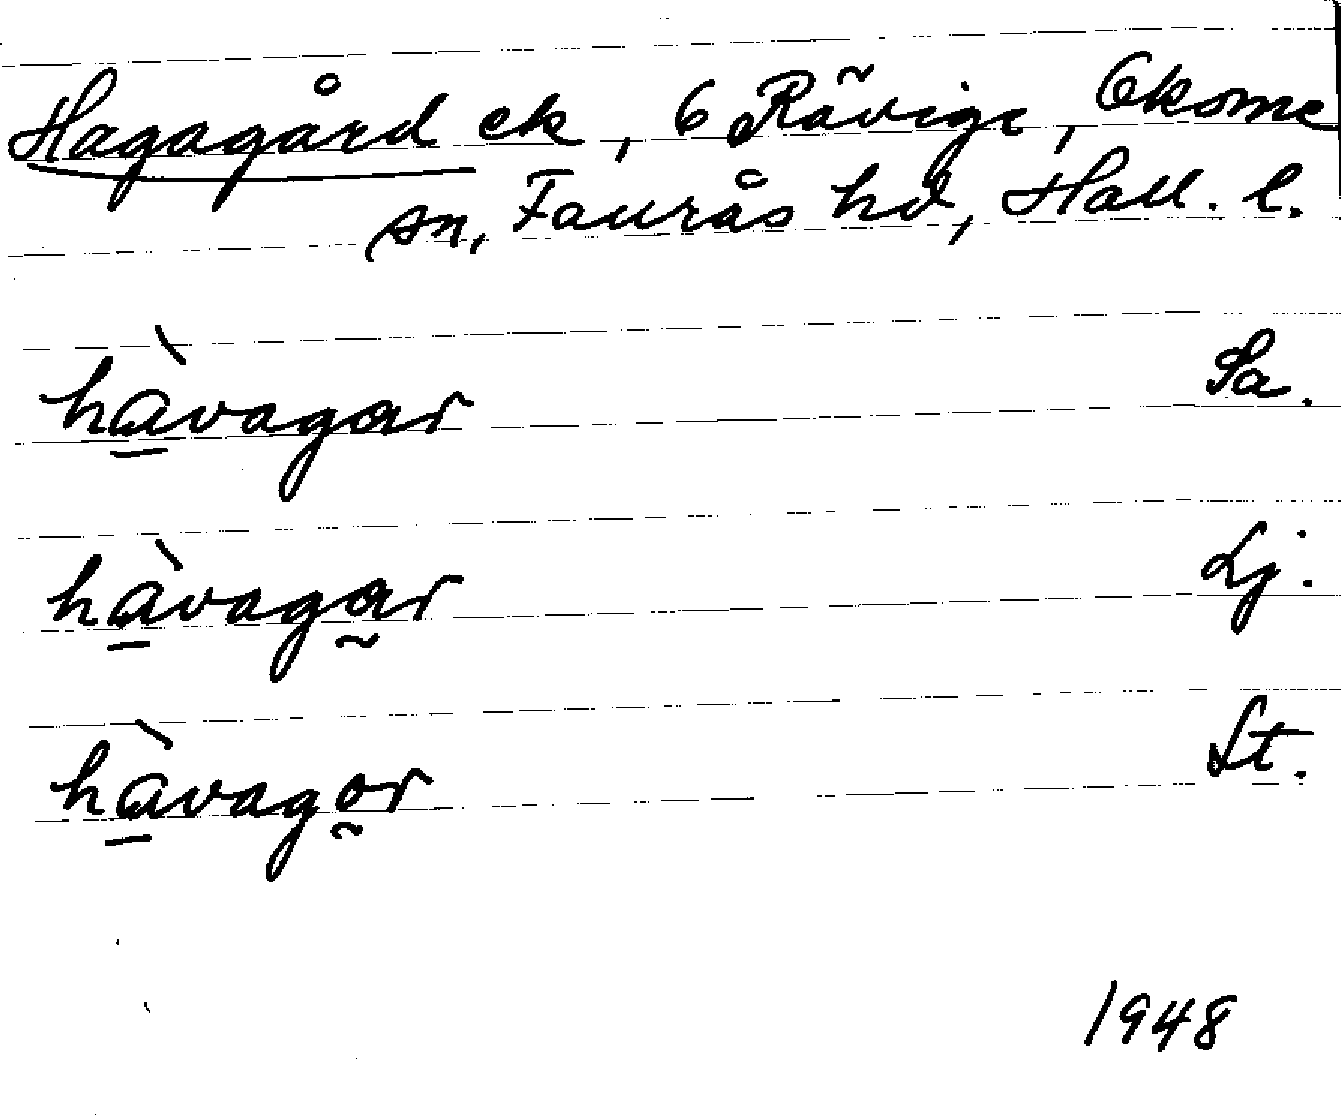 Hagagård ek, 6 Rävige, Okome
sn, Faurås hd, Hall. l.
hàvagar Sa.
hàvagar Lj.
hàvagor St.
1948